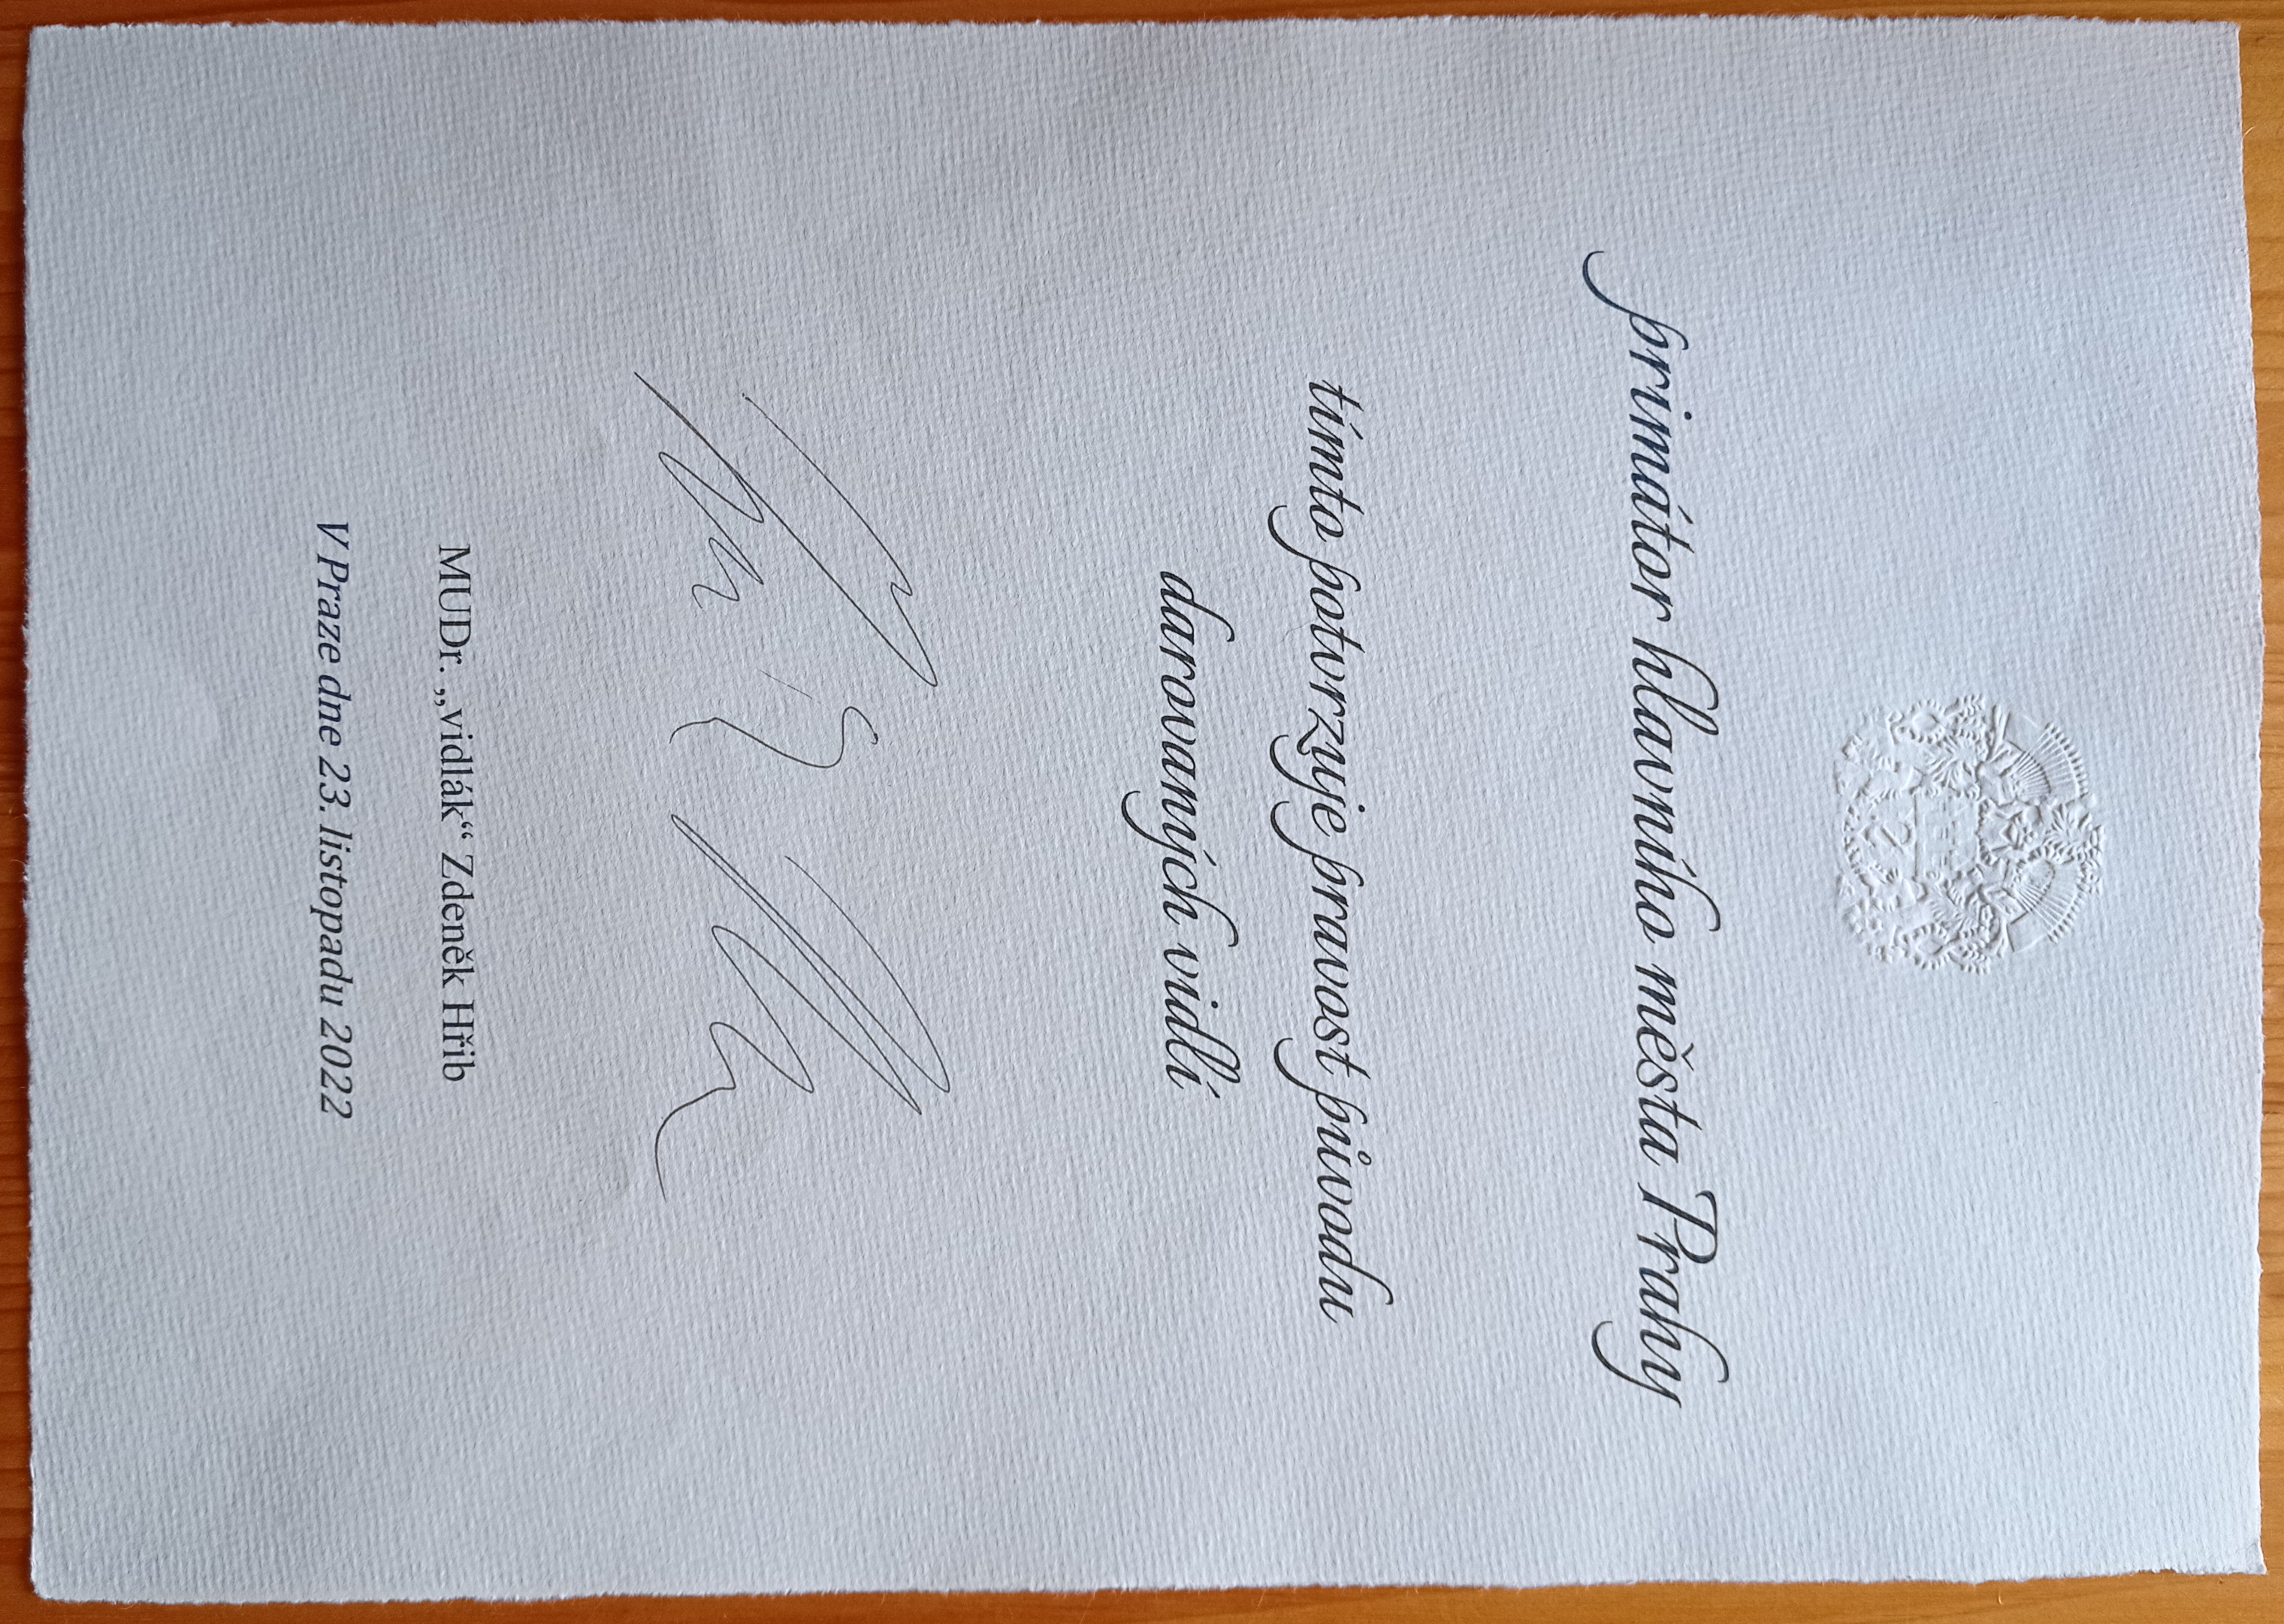 primátor hlavního města Prahy
tímto potvrzuje pravost původu
darovaných vidlí
MUDr. „vidlák“ Zdeněk Hřib
V Praze dne 23. listopadu 2022